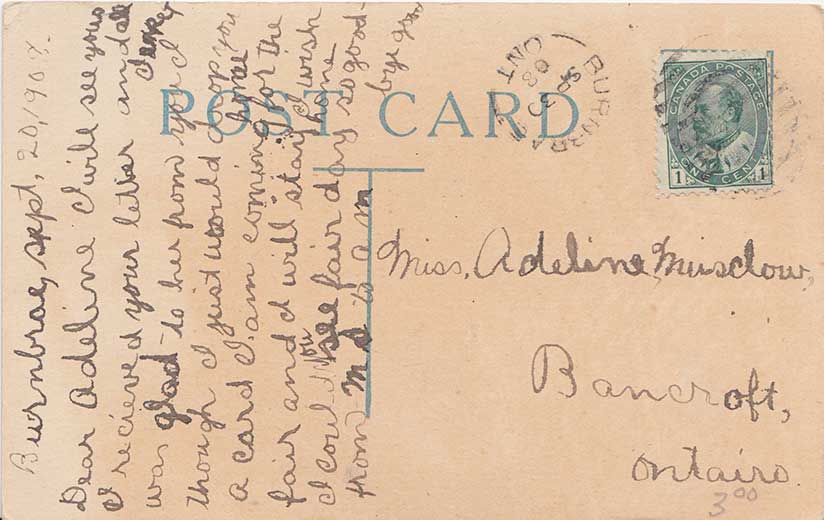 POST CARD
CANADA POSTAGE
1 ONE CENT 1
BURNBRAE
ONT
08
Miss, Adeline Musclow,
Bancroft,
Ontairo
3.00
Burnbrae, sept, 20, 1908.
Dear Adeline I will see you
I recieved your letter and
was glad to her from you I
though I just would drop you
a card I am coming home
fair and I will stay for the
I could you see fair day I wish
from M S to a m so good
bye